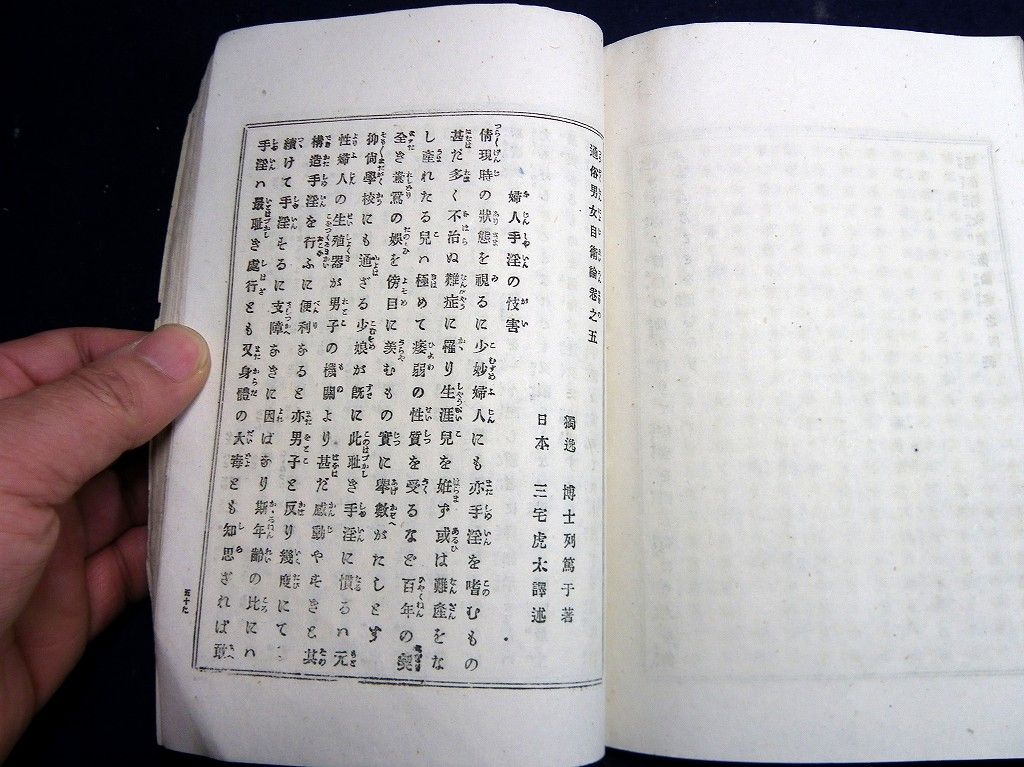 通俗男女自衛論卷之五
獨逸 博士列篤于著
日本 三宅虎太譯述
婦人手淫の伎害
倩現時の狀態を視るに少妙婦人にも亦手淫を嗜むもの
甚だ多く不治ぬ難症に罹り生涯兒を姙ず或は難產をな
し產れたる兒ハ極めて痿弱の性質を受るなど百年の契
全き鴦鴛の娛を傍目に羨むもの實に擧數がたしとす
抑尙學校にも通ざる少娘が旣に此耻き手淫に慣るハ元
性婦人の生殖器が男子の機關より甚だ感動やすきと其
構造手淫を行ふに便利なると亦男子と反り幾度にて
續けて手淫そるに支障なきに因ばなり斯年齡の比にハ
手淫ハ最耻き處行とも又身體の大毒とも知思ざれば敢
五十九